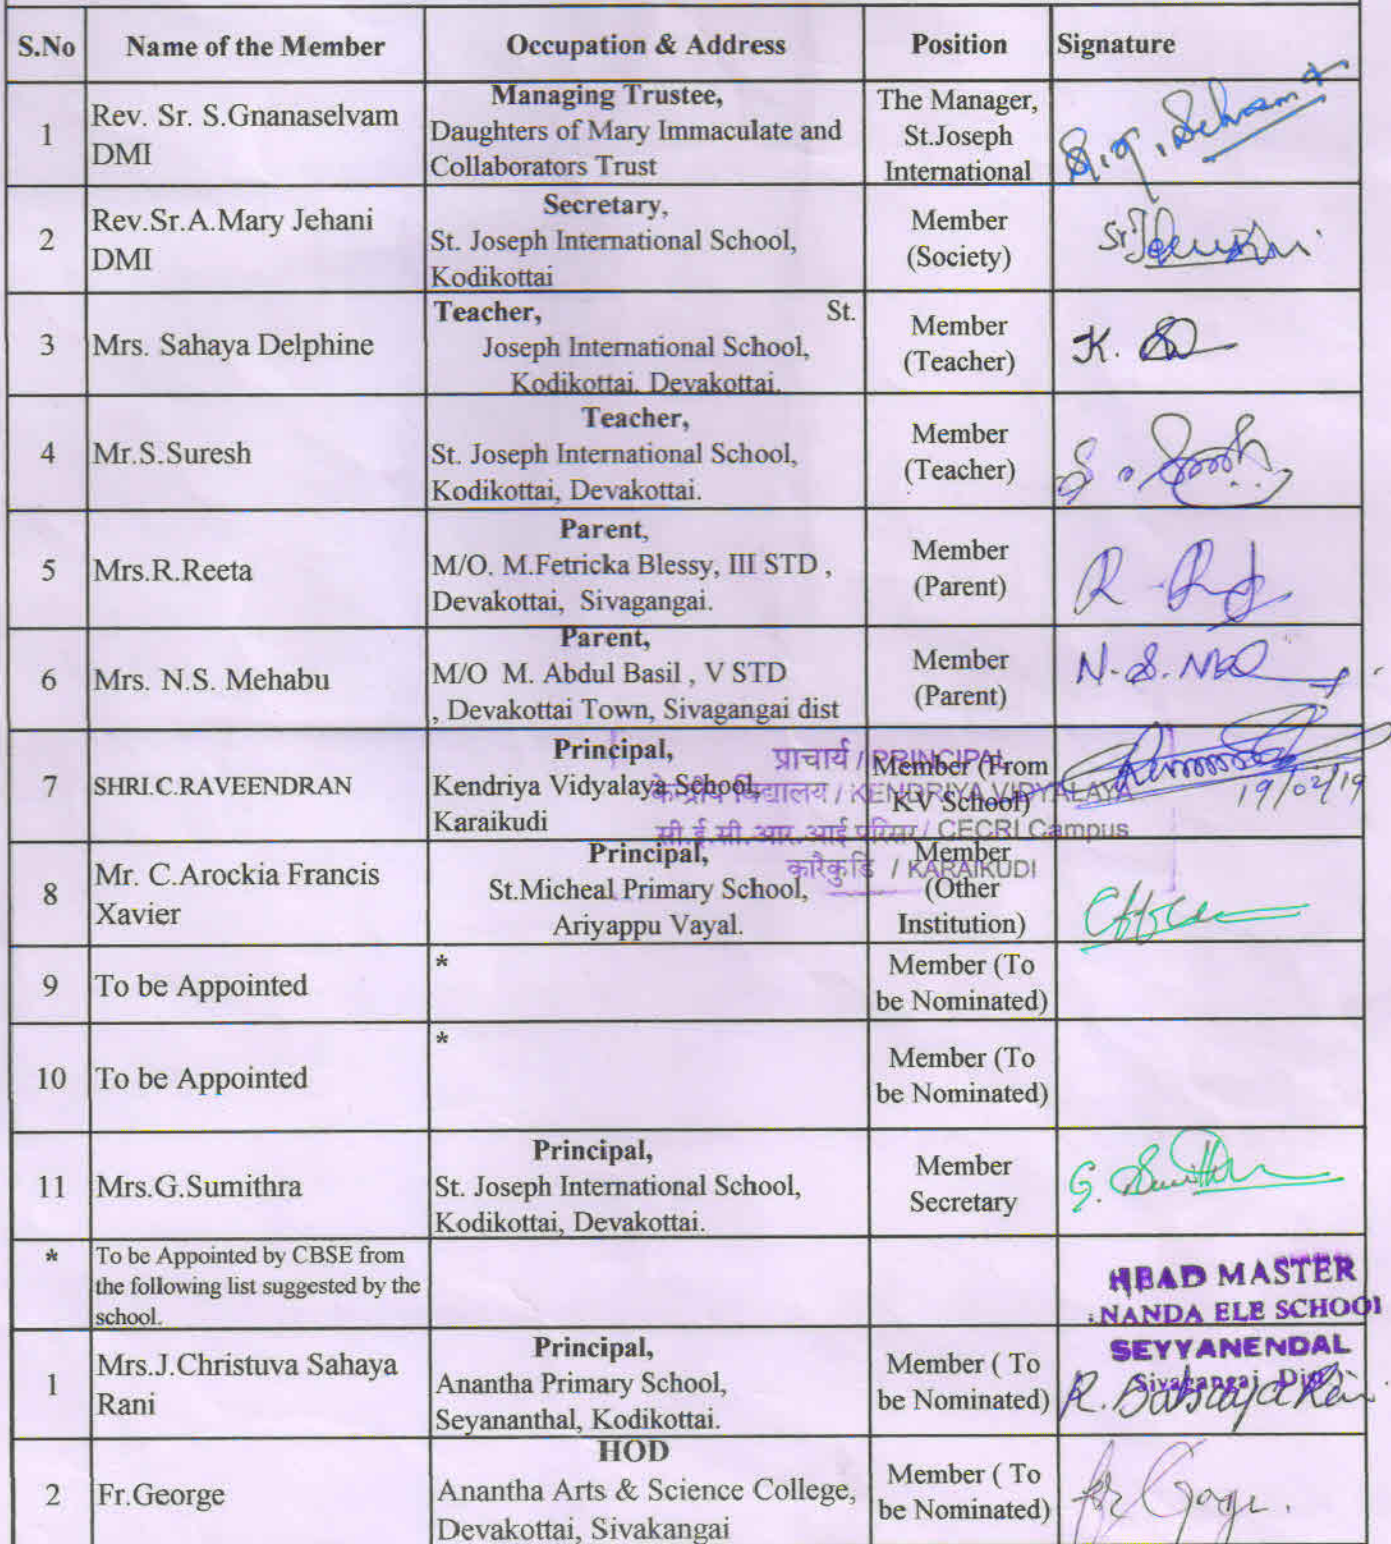 S.No Name of the Member Occupation & Address Position Signature
1
Rev. Sr. S.Gnanaselvam
DMI
Managing Trustee,
Daughters of Mary Immaculate and
Collaborators Trust
The Manager,
St.Joseph
International
2
Rev.Sr.A.Mary Jehani
DMI
Secretary,
St. Joseph International School,
Kodikottai
Member
(Society)
3
Mrs. Sahaya Delphine
Teacher, St.
Joseph International School,
Kodikottai, Devakottai.
Member
(Teacher)
K.
4
Mr.S.Suresh
Teacher,
St. Joseph International School,
Kodikottai, Devakottai.
Member
(Teacher)
5
Mrs.R.Reeta
Parent,
M/O. M.Fetricka Blessy, III STD ,
Devakottai, Sivagangai.
Member
(Parent)
6
Mrs. N.S. Mehabu
Parent,
M/O M. Abdul Basil , V STD
, Devakottai Town, Sivagangai dist
Member
(Parent)
N.S.
7
SHRI.C.RAVEENDRAN
Principal,
Kendriya Vidyalaya School,
Karaikudi
Member (From
KV School)
19/02/19
प्राचार्य / PRINCIPAL
केन्द्रीय विद्यालय / KENDRIYA VIDYALAYA
सी.ई.सी.आर.आई परिसर / CECRI Campus
कारैकुडि / KARAIKUDI
8
Mr. C.Arockia Francis
Xavier
Principal,
St.Micheal Primary School,
Ariyappu Vayal.
Member
(Other
Institution)
9
To be Appointed
*
Member (To
be Nominated)
10
To be Appointed
*
Member (To
be Nominated)
11
Mrs.G.Sumithra
Principal,
St. Joseph International School,
Kodikottai, Devakottai.
Member
Secretary
G. Sumithra
*
To be Appointed by CBSE from
the following list suggested by the
school.
HEAD MASTER
NANDA ELE SCHOOL
SEYYANENDAL
Sivagangai Dist
1
Mrs.J.Christuva Sahaya
Rani
Principal,
Anantha Primary School,
Seyananthal, Kodikottai.
Member ( To
be Nominated)
2
Fr.George
HOD
Anantha Arts & Science College,
Devakottai, Sivakangai
Member ( To
be Nominated)